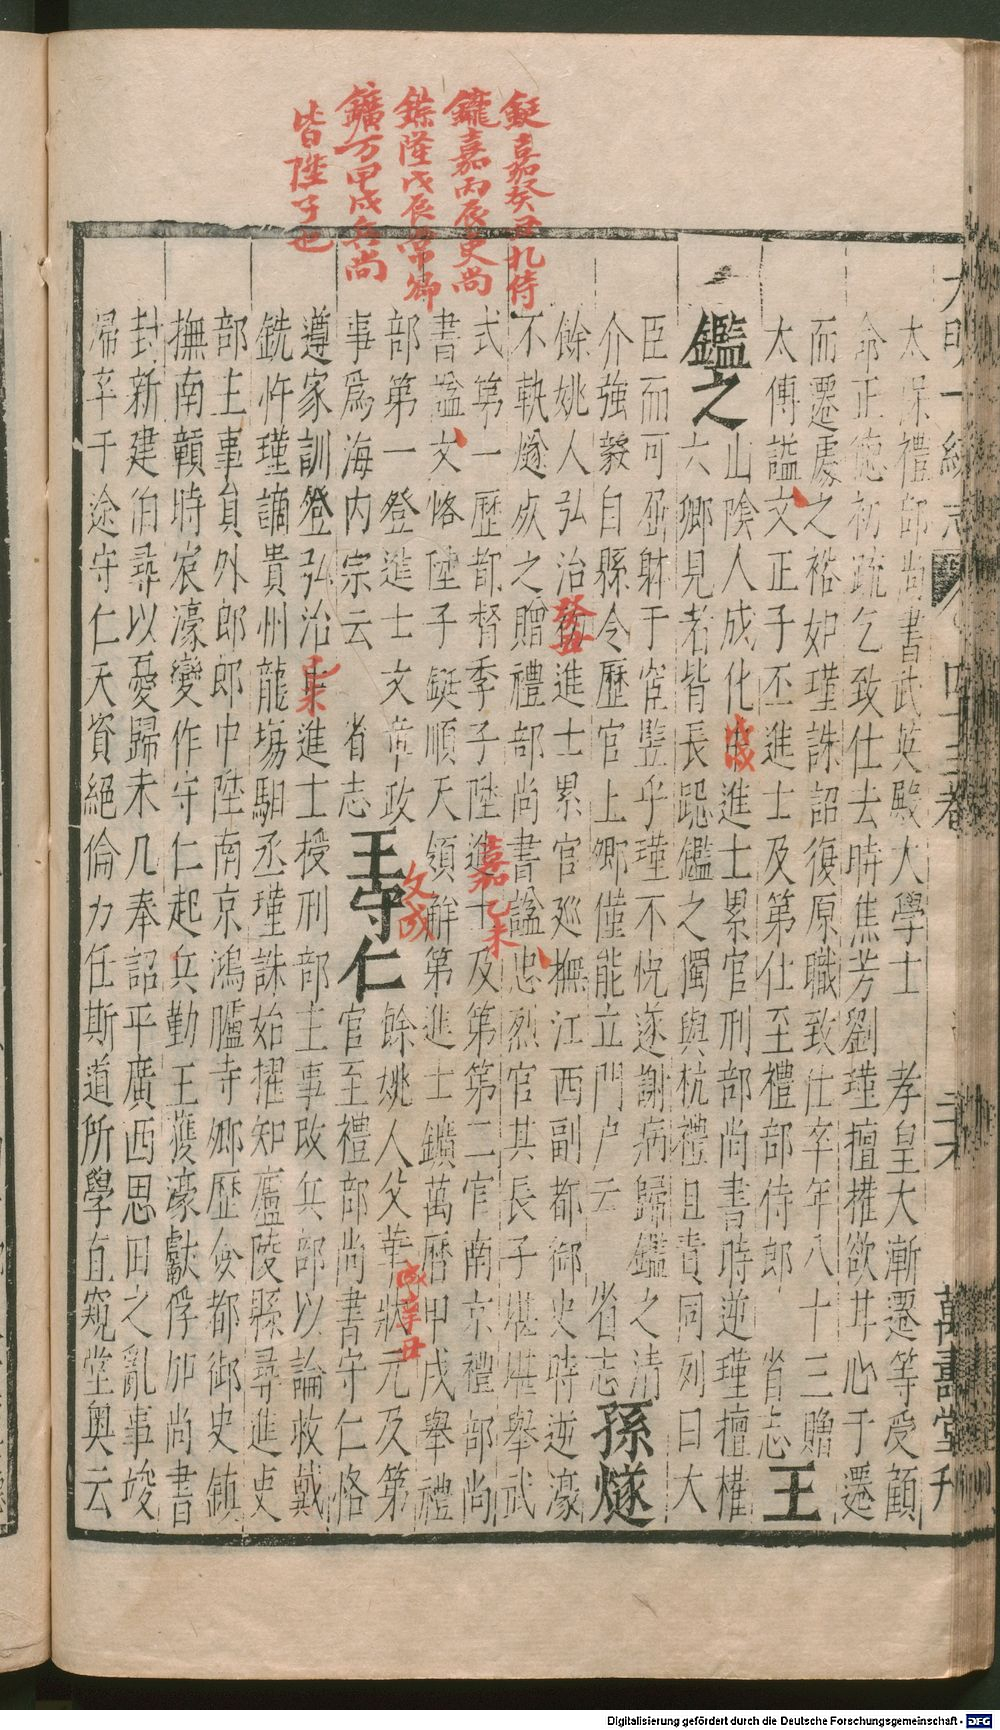 鋌嘉癸丑礼侍
鑨嘉丙辰吏尚
錝隆戊辰常卿
鑛万甲戌兵尚
皆陞子也
大明一統志 四十三卷 三十六 萬壽堂刊
太保禮部尚書武英殿大學士 孝皇大漸遷等受顧
命正德初疏乞致仕去時焦芳劉瑾擅權欲甘心于遷
而遷處之裕如瑾誅詔復原職致仕卒年八十三贈
太傅謚文正子丕進士及第仕至禮部侍郎 省志 王
鑑之 山陰人成化進士累官刑部尚書時逆瑾擅權
六卿見者皆長跽鑑之獨與杭禮且責同列曰大
臣而可屈躰于宦豎乎瑾不悅遂謝病歸鑑之清
介強毅自縣令歷官上卿僅能立門户云 省志 孫燧
餘姚人弘治進士累官廵撫江西副都御史時逆濠
不軌燧死之贈禮部尚書謚忠烈官其長子堪堪舉武
式第一歷都督季子陞進士及第第二官南京禮部尚
書謚文恪陞子鋌順天領解第進士鑛萬曆甲戌舉禮
部第一登進士文章政
事爲海内宗云 省志 王守仁 餘姚人父華狀元及第
官至禮部尚書守仁恪
遵家訓登弘治進士授刑部主事改兵部以論救戴
銑忤瑾謫貴州龍塲駅丞瑾誅始擢知廬陵縣尋進吏
部主事員外郎郎中陞南京鴻臚寺卿歷僉都御史鎮
撫南贑時宸濠變作守仁起兵勤王獲濠獻俘加尚書
封新建伯尋以憂歸未几奉詔平廣西思田之亂事竣
歸卒于途守仁天資絕倫力任斯道所學直窺堂奧云
戊戌
癸丑
嘉乙未
文成
成辛丑
己未
Digitalisierung gefördert durch die Deutsche Forschungsgemeinschaft - DFG